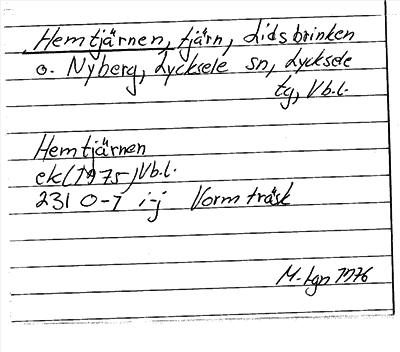 Hemtjärnen, tjärn, Lidsbrinken
o. Nyberg, Lycksele sn, Lycksele
tg, Vb.l.
Hemtjärnen
ek(1975)Vb.l.
231 0-1 i-j Vormträsk
M-lgn 1976